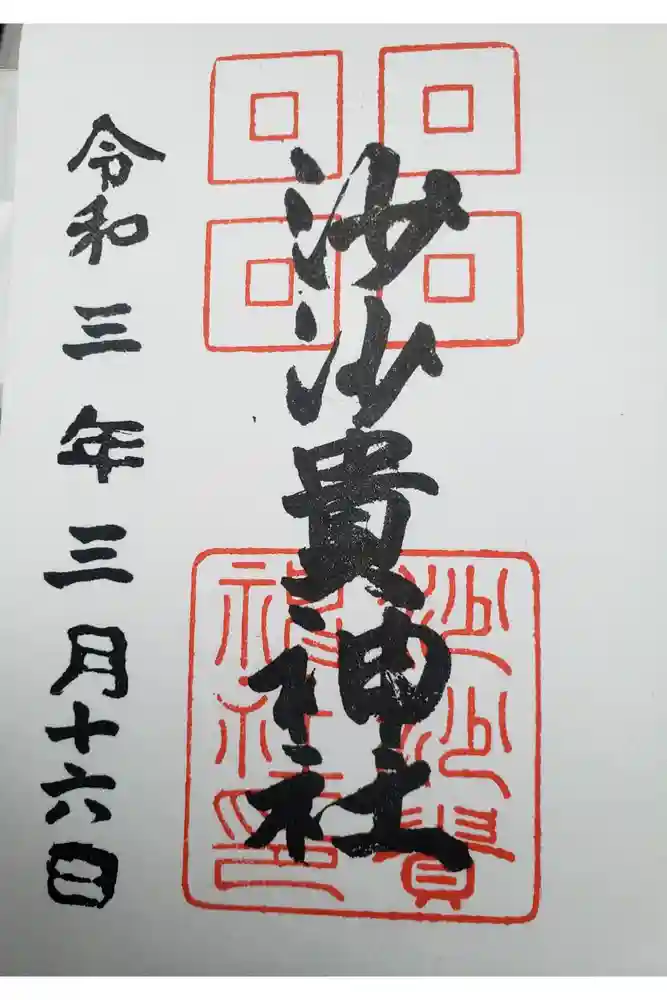 沙沙貴神社
令和三年三月十六日
沙沙貴
神社印